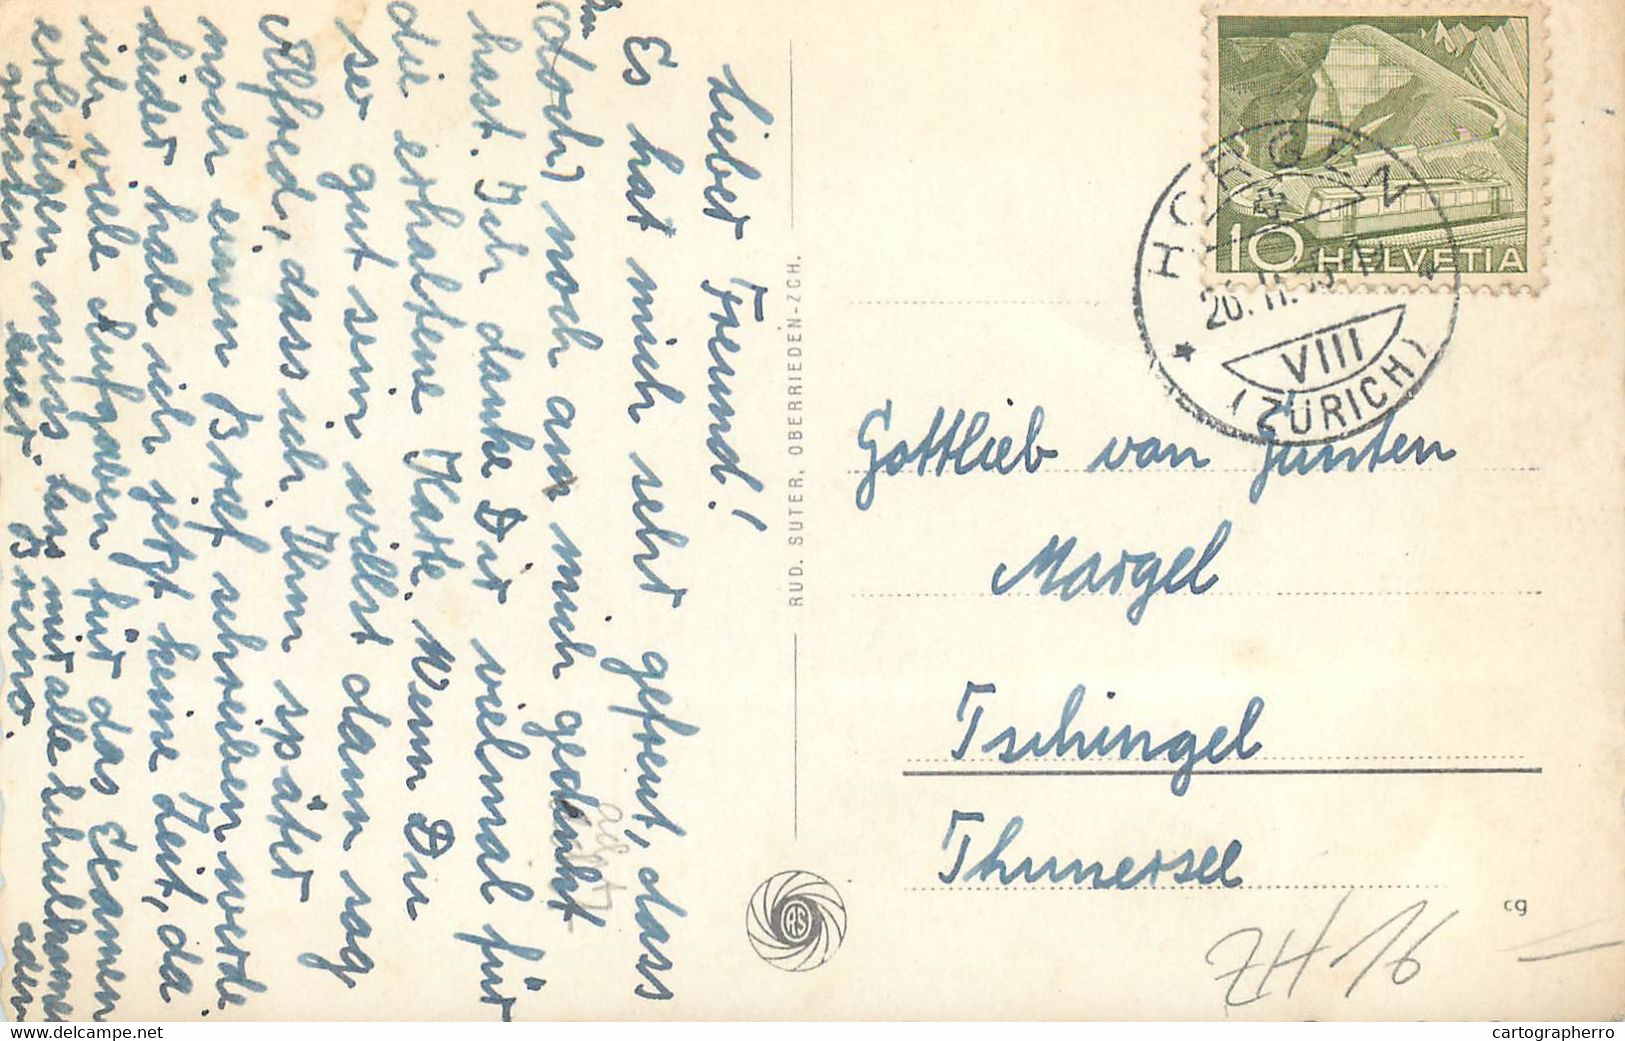 Lieber Freund!
Es hat mich sehr gefreut, dass
Du
(doch) noch an mich gedenkt
acht
hast. Ich danke Dir vielmal für
die erhaltene Karte. Wenn Du
so gut sein willst dann sag
Alfred, dass ich Ihm später
noch einen Brief schreiben werde
leider habe ich jetzt keine Zeit, da
ich viele Aufgaben für das Examen
erledigen muss. Lass mir alle Schulkamer
aden
grüsen euer Bruno.
RUD. SUTER, OBERRIEDEN-ZCH.
RS
10 HELVETIA
HORGEN
26. II. 
VIII
(ZÜRICH)
Gottlieb von Gunten
Margel
Tschingel
Thunersee
cg
ZH 16
delcampe.net
cartographerro